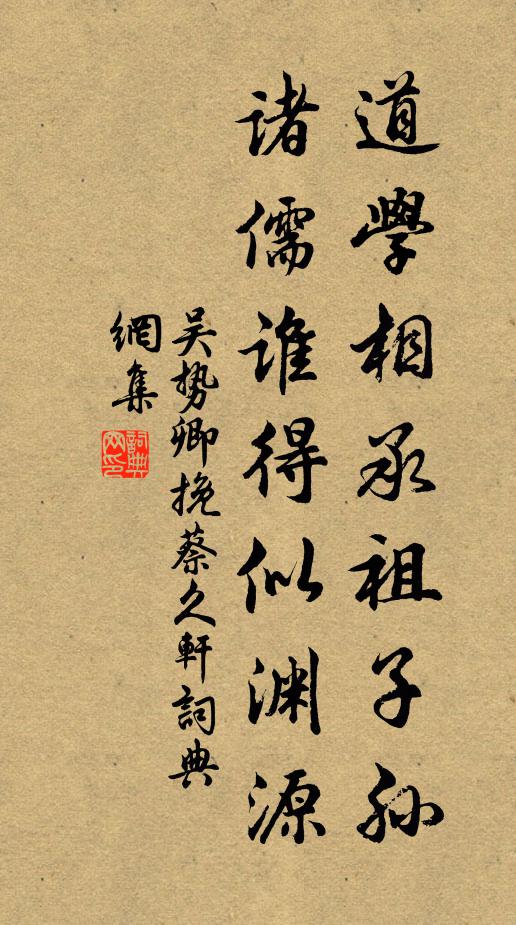 道學相承祖子孫
諸儒誰得似渊源
吴势卿挽蔡久軒詞典
網集
詞典
网印